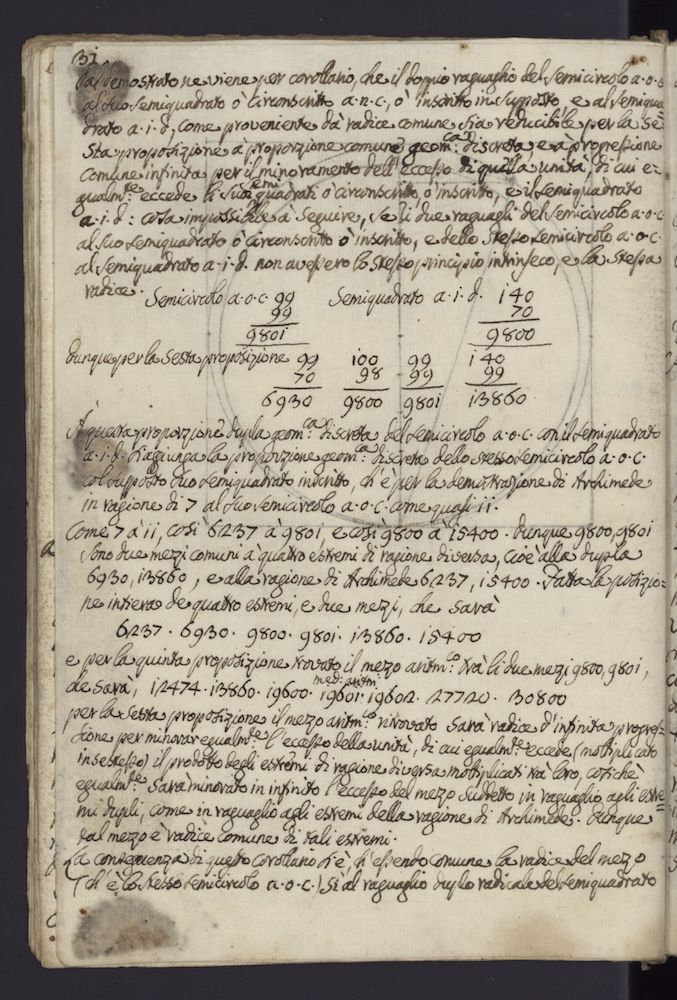 31
Dal demostrato ne viene per corollario, che il doppio raguaglio del Semicircolo a.o.c
al suo Semiquadrato ò circonscritto a.n.c, ò inscritto in supposto, e al Semiqua
drato a.i.d, come proveniente dà radice comune sia reducibile per la se=
sta proposizione à proporzione comune geom:ca discreta, e à progressione
comune infinita per il minoramento dell'eccesso di quella unità, di cui e=
gualm:te eccede li suoi semiquadrati ò circonscritto, ò inscritto, e il Semiquadrato
a.i.d: cosa impossibile à seguire, se li due raguagli del Semicircolo a.o.c
al suo semiquadrato ò circonscritto ò inscritto, e dello stesso semicircolo a.o.c.
al semiquadrato a.i.d. non avessero lo stesso principio intrinseco, e la stessa
radice. Semicircolo a.o.c. 99 Semiquadrato a.i.d. 140
99 70
9801 9800
Dunque per la sesta proposizione 99 100 99 140
70 98 99 99
6930 9800 9801 13860
A questa proporzione dupla geom:ca discreta del semicircolo a.o.c. con il semiquadrato
a.i.d. s'aggiunga la proporzione geom:ca discreta dello stesso semicircolo a.o.c.
col supposto suo semiquadrato inscritto, ch'è per la demostrazione di Archimede
in ragione di 7 al suo semicircolo a.o.c. come quasi 11.
Come 7 à 11, così 6237 à 9801, e così 9800 à 15400. Dunque 9800, 9801
sono due mezzi comuni à quattro estremi di ragione diversa, cioè alla dupla
6930, 13860, e alla ragione di Archimede 6237, 15400. Fatta la posizio=
ne intiera de quattro estremi, e due mezzi, che sarà
6237. 6930. 9800. 9801. 13860. 15400
e per la quinta proposizione trovato il mezzo aritm:co trà li due mezzi 9800, 9801,
med: aritm:
che sarà, 12474. 13860. 19600. 19601. 19602. 27720. 30800
per la sesta proposizione il mezzo aritm:co ritrovato sarà radice d'infinita progres=
sione per minorar egualm:te l'eccesso della unità, di cui egualm:te eccede (moltiplicato
in se stesso) il prodotto degli estremi di ragione diversa moltiplicati trà loro, cosichè
egualm:te sarà minorato in infinito l'eccesso del mezzo suddetto in raguaglio agli estre=
mi dupli, come in raguaglio agli estremi della ragione di Archimede. Dunque
tal mezzo è radice comune di tali estremi.
La conseguenza di questo corollario si è, ch'essendo comune la radice del mezzo
(ch'è lo stesso semicircolo a.o.c.) sì al raguaglio duplo radicale del semiquadrato